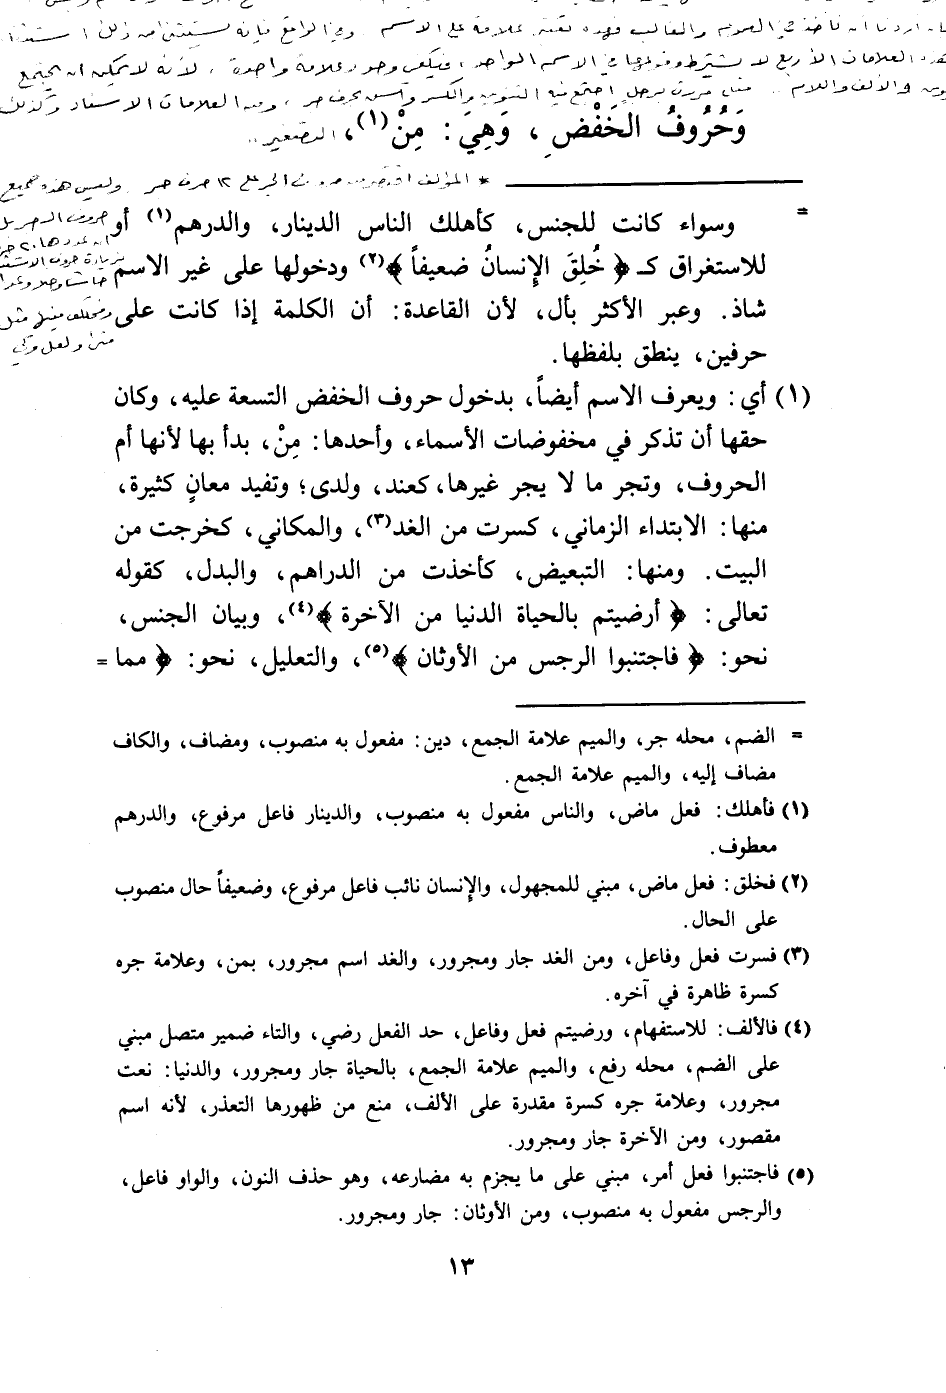 هذه العلامات الأربع لا يشترط وقوعها في الاسم الواحد، فيكفي وجود علامة واحدة، لأنه لا يمكن أن يجتمع
وَحُرُوفُ الخَفْضِ، وَهِيَ: مِنْ(١)،
التصغير..
* المؤلف ١٢ حرف جر وليس هذه جميع
= وسواء كانت للجنس، كأهلك الناس الدينار، والدرهم(١) أو
للاستغراق كـ ﴿ خُلِقَ الإِنسانُ ضعيفاً ﴾(٢) ودخولها على غير الاسم
شاذ. وعبر الأكثر بأل، لأن القاعدة: أن الكلمة إذا كانت على
حرفين، ينطق بلفظها.
حروف الجر بل
خاشا وخلا وعدا
متى ولعل وكي
(١) أي: ويعرف الاسم أيضاً، بدخول حروف الخفض التسعة عليه، وكان
حقها أن تذكر في مخفوضات الأسماء، وأحدها: مِنْ، بدأ بها لأنها أم
الحروف، وتجر ما لا يجر غيرها، كعند، ولدى؛ وتفيد معانٍ كثيرة،
منها: الابتداء الزماني، كسرت من الغد(٣)، والمكاني، كخرجت من
البيت. ومنها: التبعيض، كأخذت من الدراهم، والبدل، كقوله
تعالى: ﴿ أرضيتم بالحياة الدنيا من الآخرة ﴾(٤)، وبيان الجنس،
نحو: ﴿ فاجتنبوا الرجس من الأوثان ﴾(٥)، والتعليل، نحو: ﴿ مما =
= الضم، محله جر، والميم علامة الجمع، دين: مفعول به منصوب، ومضاف، والكاف
مضاف إليه، والميم علامة الجمع.
(١) فأهلك: فعل ماض، والناس مفعول به منصوب، والدينار فاعل مرفوع، والدرهم
معطوف.
(٢) فخلق: فعل ماض، مبني للمجهول، والإنسان نائب فاعل مرفوع، وضعيفاً حال منصوب
على الحال.
(٣) فسرت فعل وفاعل، ومن الغد جار ومجرور، والغد اسم مجرور، بمن، وعلامة جره
كسرة ظاهرة في آخره.
(٤) فالألف: للاستفهام، ورضيتم فعل وفاعل، حد الفعل رضي، والتاء ضمير متصل مبني
على الضم، محله رفع، والميم علامة الجمع، بالحياة جار ومجرور، والدنيا: نعت
مجرور، وعلامة جره كسرة مقدرة على الألف، منع من ظهورها التعذر، لأنه اسم
مقصور، ومن الآخرة جار ومجرور.
(٥) فاجتنبوا فعل أمر، مبني على ما يجزم به مضارعه، وهو حذف النون، والواو فاعل،
والرجس مفعول به منصوب، ومن الأوثان: جار ومجرور.
١٣